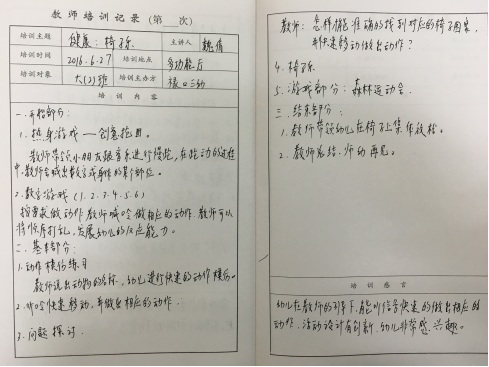 教师培训记录(第 次)
培训主题 健康:椅子乐 主讲人 魏倩
培训时间 2016.6.27 培训地点 多功能厅
培训对象 大(2)班 培训主办方
培训内容
一.开始部分:
1.热身游戏——创意抱团。
教师带领小朋友跟音乐进行慢跑,在跑动的过程
中,教师会喊出数字或身体的某个部位。
2.数字游戏(1.2.3.4.5.6)
按要求做动作,教师喊口令做相应的动作.教师可以
将顺序打乱,发展幼儿的反应能力。
二.基本部分:
1.动作模仿练习
教师说出动物的名称,幼儿进行快速的动作模仿。
2.听口令快速移动,并做出相应的动作.
3.问题探讨.
教师:怎样才能准确的找到对应的椅子图案,
并快速移动做出动作?
4.椅子乐
5.游戏部分:森林运动会.
三.结束部分:
1.教师带领幼儿在椅子上集体放松。
2.教师总结.师幼再见。
培训感言
幼儿在教师的引导下,能听信号快速的做出相应的
动作.活动设计有创新,幼儿非常感兴趣。